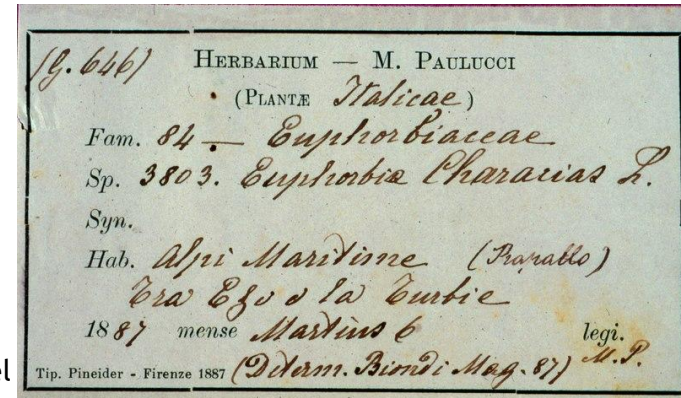 (G. 646) HERBARIUM — M. PAULUCCI
(PLANTÆ Italicae)
Fam. 84 — Euphorbiaceae
Sp. 3803. Euphorbia Characias L.
Syn.
Hab. Alpi Maritime (Rapallo)
Tra Eza e la Turbie
1887 mense Martius 6 legi.
Tip. Pineider - Firenze 1887 (Determ. Biondi Mag. 87) M. P.
el